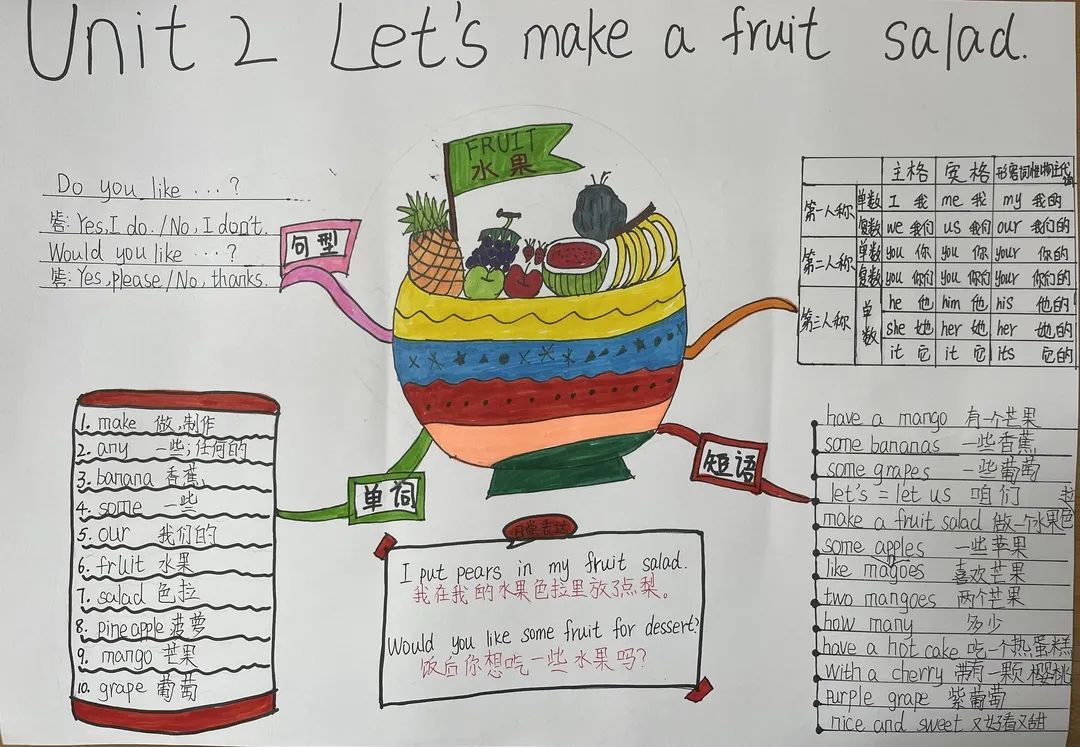 Unit 2 Let's make a fruit salad.
FRUIT
水果
Do you like ...?
答: Yes, I do. / No, I don't.
Would you like ...?
答: Yes, please / No, thanks.
句型
主格 宾格 形容词性物主代词
第一人称 单数 I 我 me 我 my 我的
复数 we 我们 us 我们 our 我们的
第二人称 单数 you 你 you 你 your 你的
复数 you 你们 you 你们 your 你们的
第三人称 单数 he 他 him 他 his 他的
she 她 her 她 her 她的
it 它 it 它 its 它的
单词
1. make 做,制作
2. any 一些;任何的
3. banana 香蕉
4. some 一些
5. our 我们的
6. fruit 水果
7. salad 色拉
8. pineapple 菠萝
9. mango 芒果
10. grape 葡萄
日常表达
I put pears in my fruit salad.
我在我的水果色拉里放了点梨。
Would you like some fruit for dessert?
饭后你想吃一些水果吗?
短语
have a mango 有一个芒果
some bananas 一些香蕉
some grapes 一些葡萄
let's = let us 咱们
make a fruit salad 做一个水果色拉
some apples 一些苹果
like magoes 喜欢芒果
two mangoes 两个芒果
how many 多少
have a hot cake 吃一个热蛋糕
with a cherry 带有一颗樱桃
purple grape 紫葡萄
nice and sweet 又好看又甜